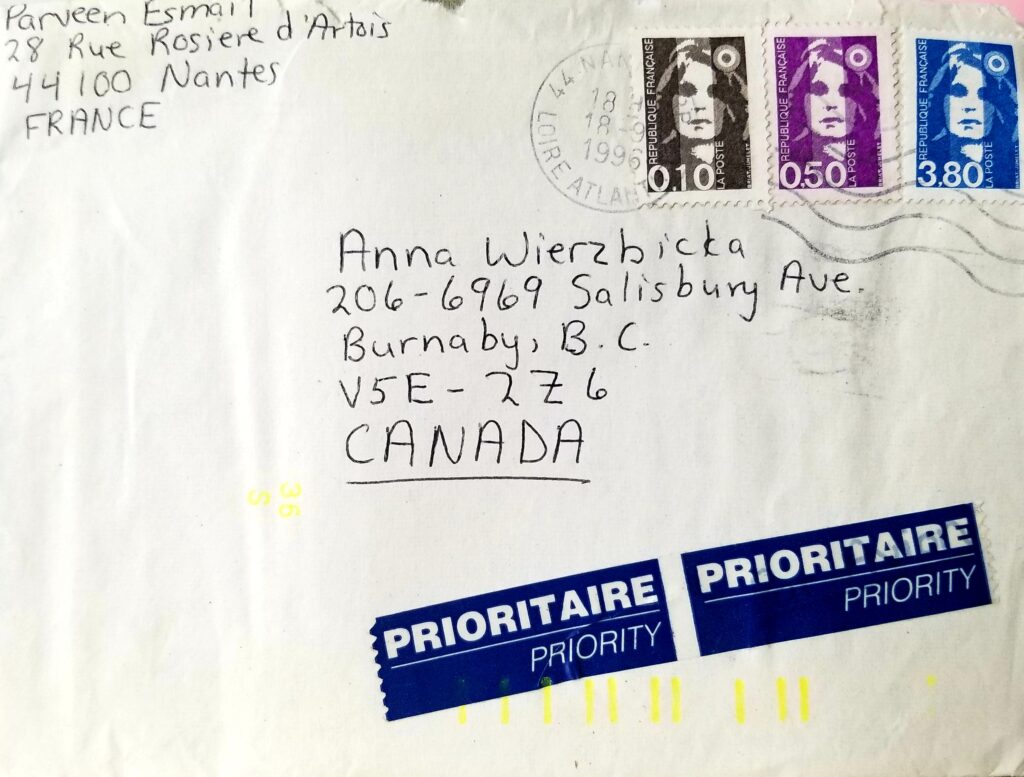 Parveen Esmail
28 Rue Rosiere d'Artois
44100 Nantes
FRANCE
44 NAN
18 H
18
1996
LOIRE ATLANT
RÉPUBLIQUE FRANÇAISE
0,10
LA POSTE
RÉPUBLIQUE FRANÇAISE
0,50
LA POSTE
RÉPUBLIQUE FRANÇAISE
3,80
LA POSTE
Anna Wierzbicka
206-6969 Salisbury Ave.
Burnaby, B.C.
V5E-2Z6
CANADA
36
S
PRIORITAIRE
PRIORITY
PRIORITAIRE
PRIORITY